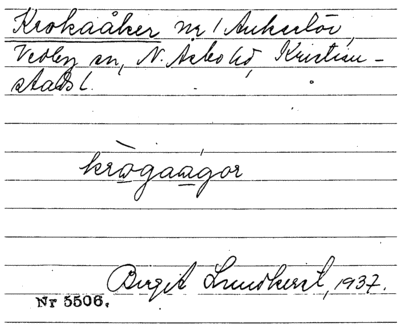 Krokaåker nr 1 Ankarlöv,
Vedby sn, N. Åsbo hd, Kristian-
stads l.
krògaágor
Birgit Lundkvist, 1937.
Nr 5506.